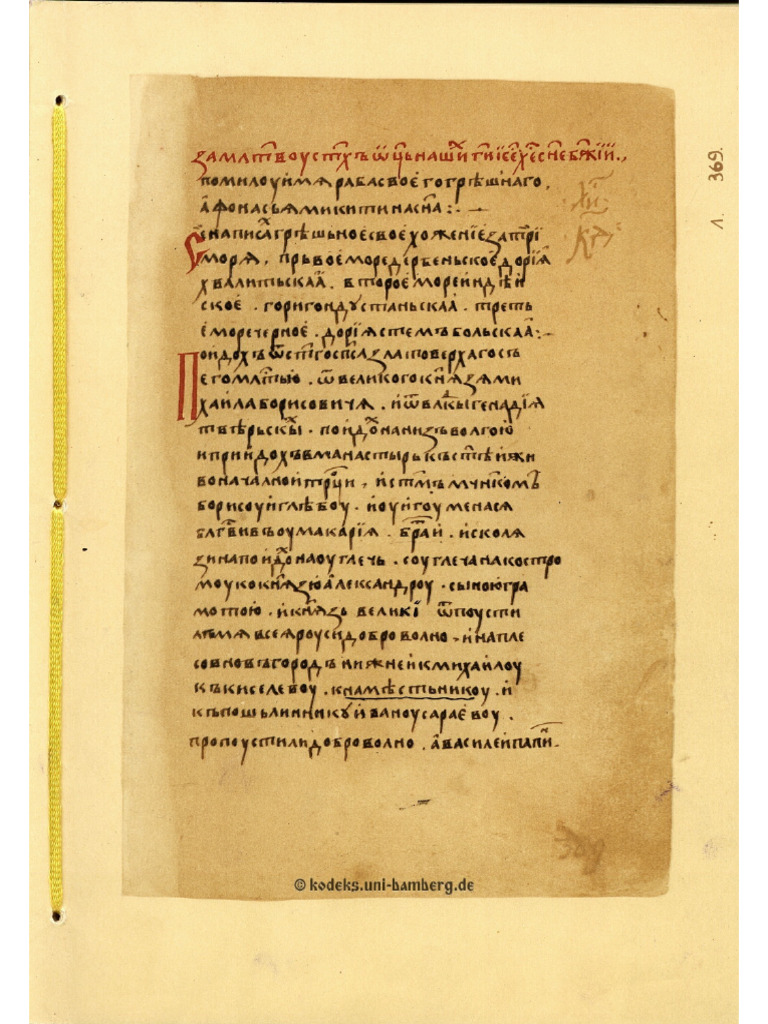 за млтв̑оу ст҃хъ ѿць наши ги іс҃е хе҃ сн҃е бж҃іи.,
помилоуймѧ раба своего грѣшнаго,
афонасьѧ микитина сн҃а : . —
Се написа грѣшьное свое хоженіе за три
морѧ, прьвое море дербеньское дорїа
хвалитьскаа. второе море индѣи
ское. гори гондустаньскаа. треть
ее море черное. дорїѧ стемъбольскаа :.
Поидохъ ѿ ст҃го сп҃са златоверхаго съ
его млтїю. ѿ великого кн҃ѧзѧ ми
хаила борисовичѧ. и ѿ влкы генадїѧ
твѣрьскы. поидо на низъ волгою
и приидохъ в манастырь къ ст҃ѣи жи
воначалнои трци, и ст҃мъ мчнкомъ
борисоу и глѣбоу. и оу игоуменасѧ
блгвивъ оу макарїѧ. братїи. и с колѧ
зина поидо на оуглечь. с оуглеча на костро
моу ко кн҃ѧзю александроу. с ыною гра
мотою. и кн҃ѧзь великї ѿпоусти
лъ мѧ всеѧ роуси доброволно. и на пле
со в новъгородъ нижнеи к михаилоу
къ киселевоу. к намѣстьникоу. и
къ пошьлиннику иваноу сараевоу.
пропоустили доброволно. а василеи папи.
Л. 369.
369
© kodeks.uni-bamberg.de